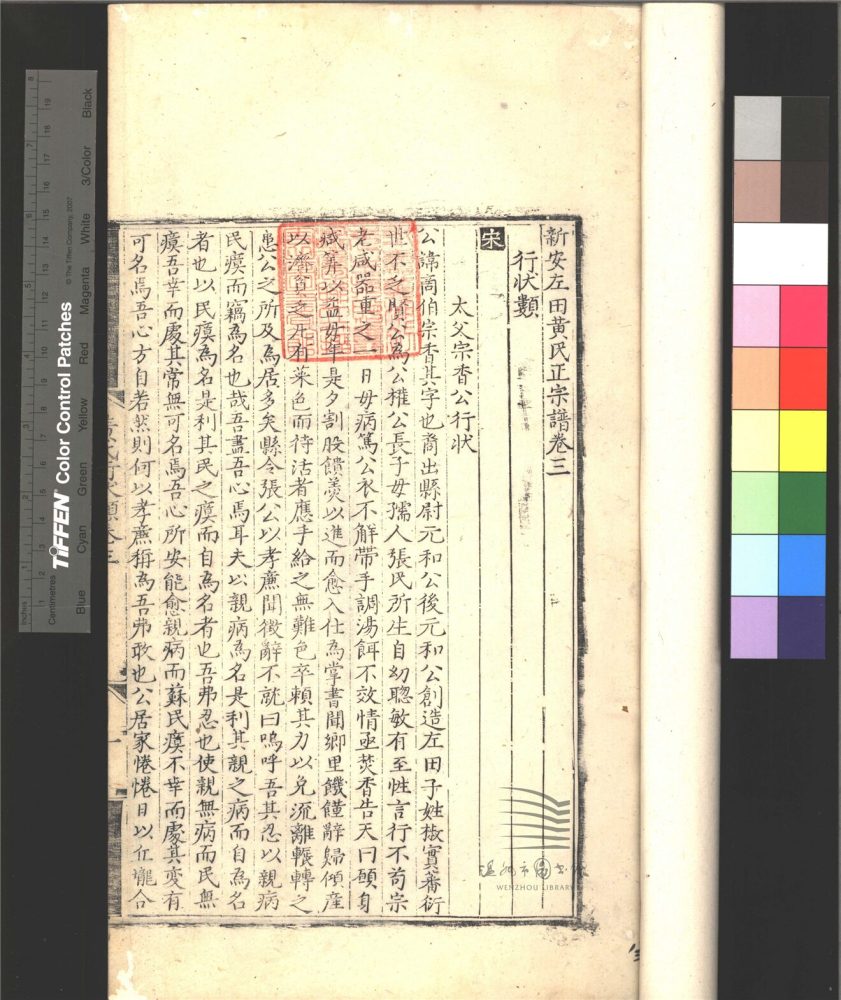 新安左田黃氏正宗譜卷三
行狀類
宋
太父宗香公行狀
公諱啇伯宗香其字也裔出縣尉元和公後元和公創造左田子姓椒實蕃衍
世不乏賢公為公權公長子母孺人張氏所生自幼聰敏有至性言行不苟宗
老咸器重之一日母病篤公衣不解帶手調湯餌不效情亟焚香告天曰願身
減筭以益母年是夕割股饋羹以進而愈入仕為掌書聞鄉里饑饉辭歸傾產
以濟貧乏凡有菜色而待活者應手給之無難色卒賴其力以免流離輾轉之
患公之所及為居多矣縣令張公以孝廉聞徵辭不就曰嗚呼吾其忍以親病
民瘼而竊為名也哉吾盡吾心焉耳夫以親病為名是利其親之病而自為名
者也以民瘼為名是利其民之瘼而自為名者也吾弗忍也使親無病而民無
瘼吾幸而處其常無可名焉吾心所安能愈親病而蘇民瘼不幸而處其變有
可名焉吾心方自若然則何以孝廉稱為吾弗敢也公居家惓惓日以丘壠合
黃氏行狀類卷三
一
溫州市圖書館
WENZHOU LIBRARY
TIFFEN Color Control Patches
© The Tiffen Company, 2007
Inches
1
2
3
4
5
6
7
8
Centimetres
1
2
3
4
5
6
7
8
9
10
11
12
13
14
15
16
17
18
19
Blue
Cyan
Green
Yellow
Red
Magenta
White
3/Color
Black